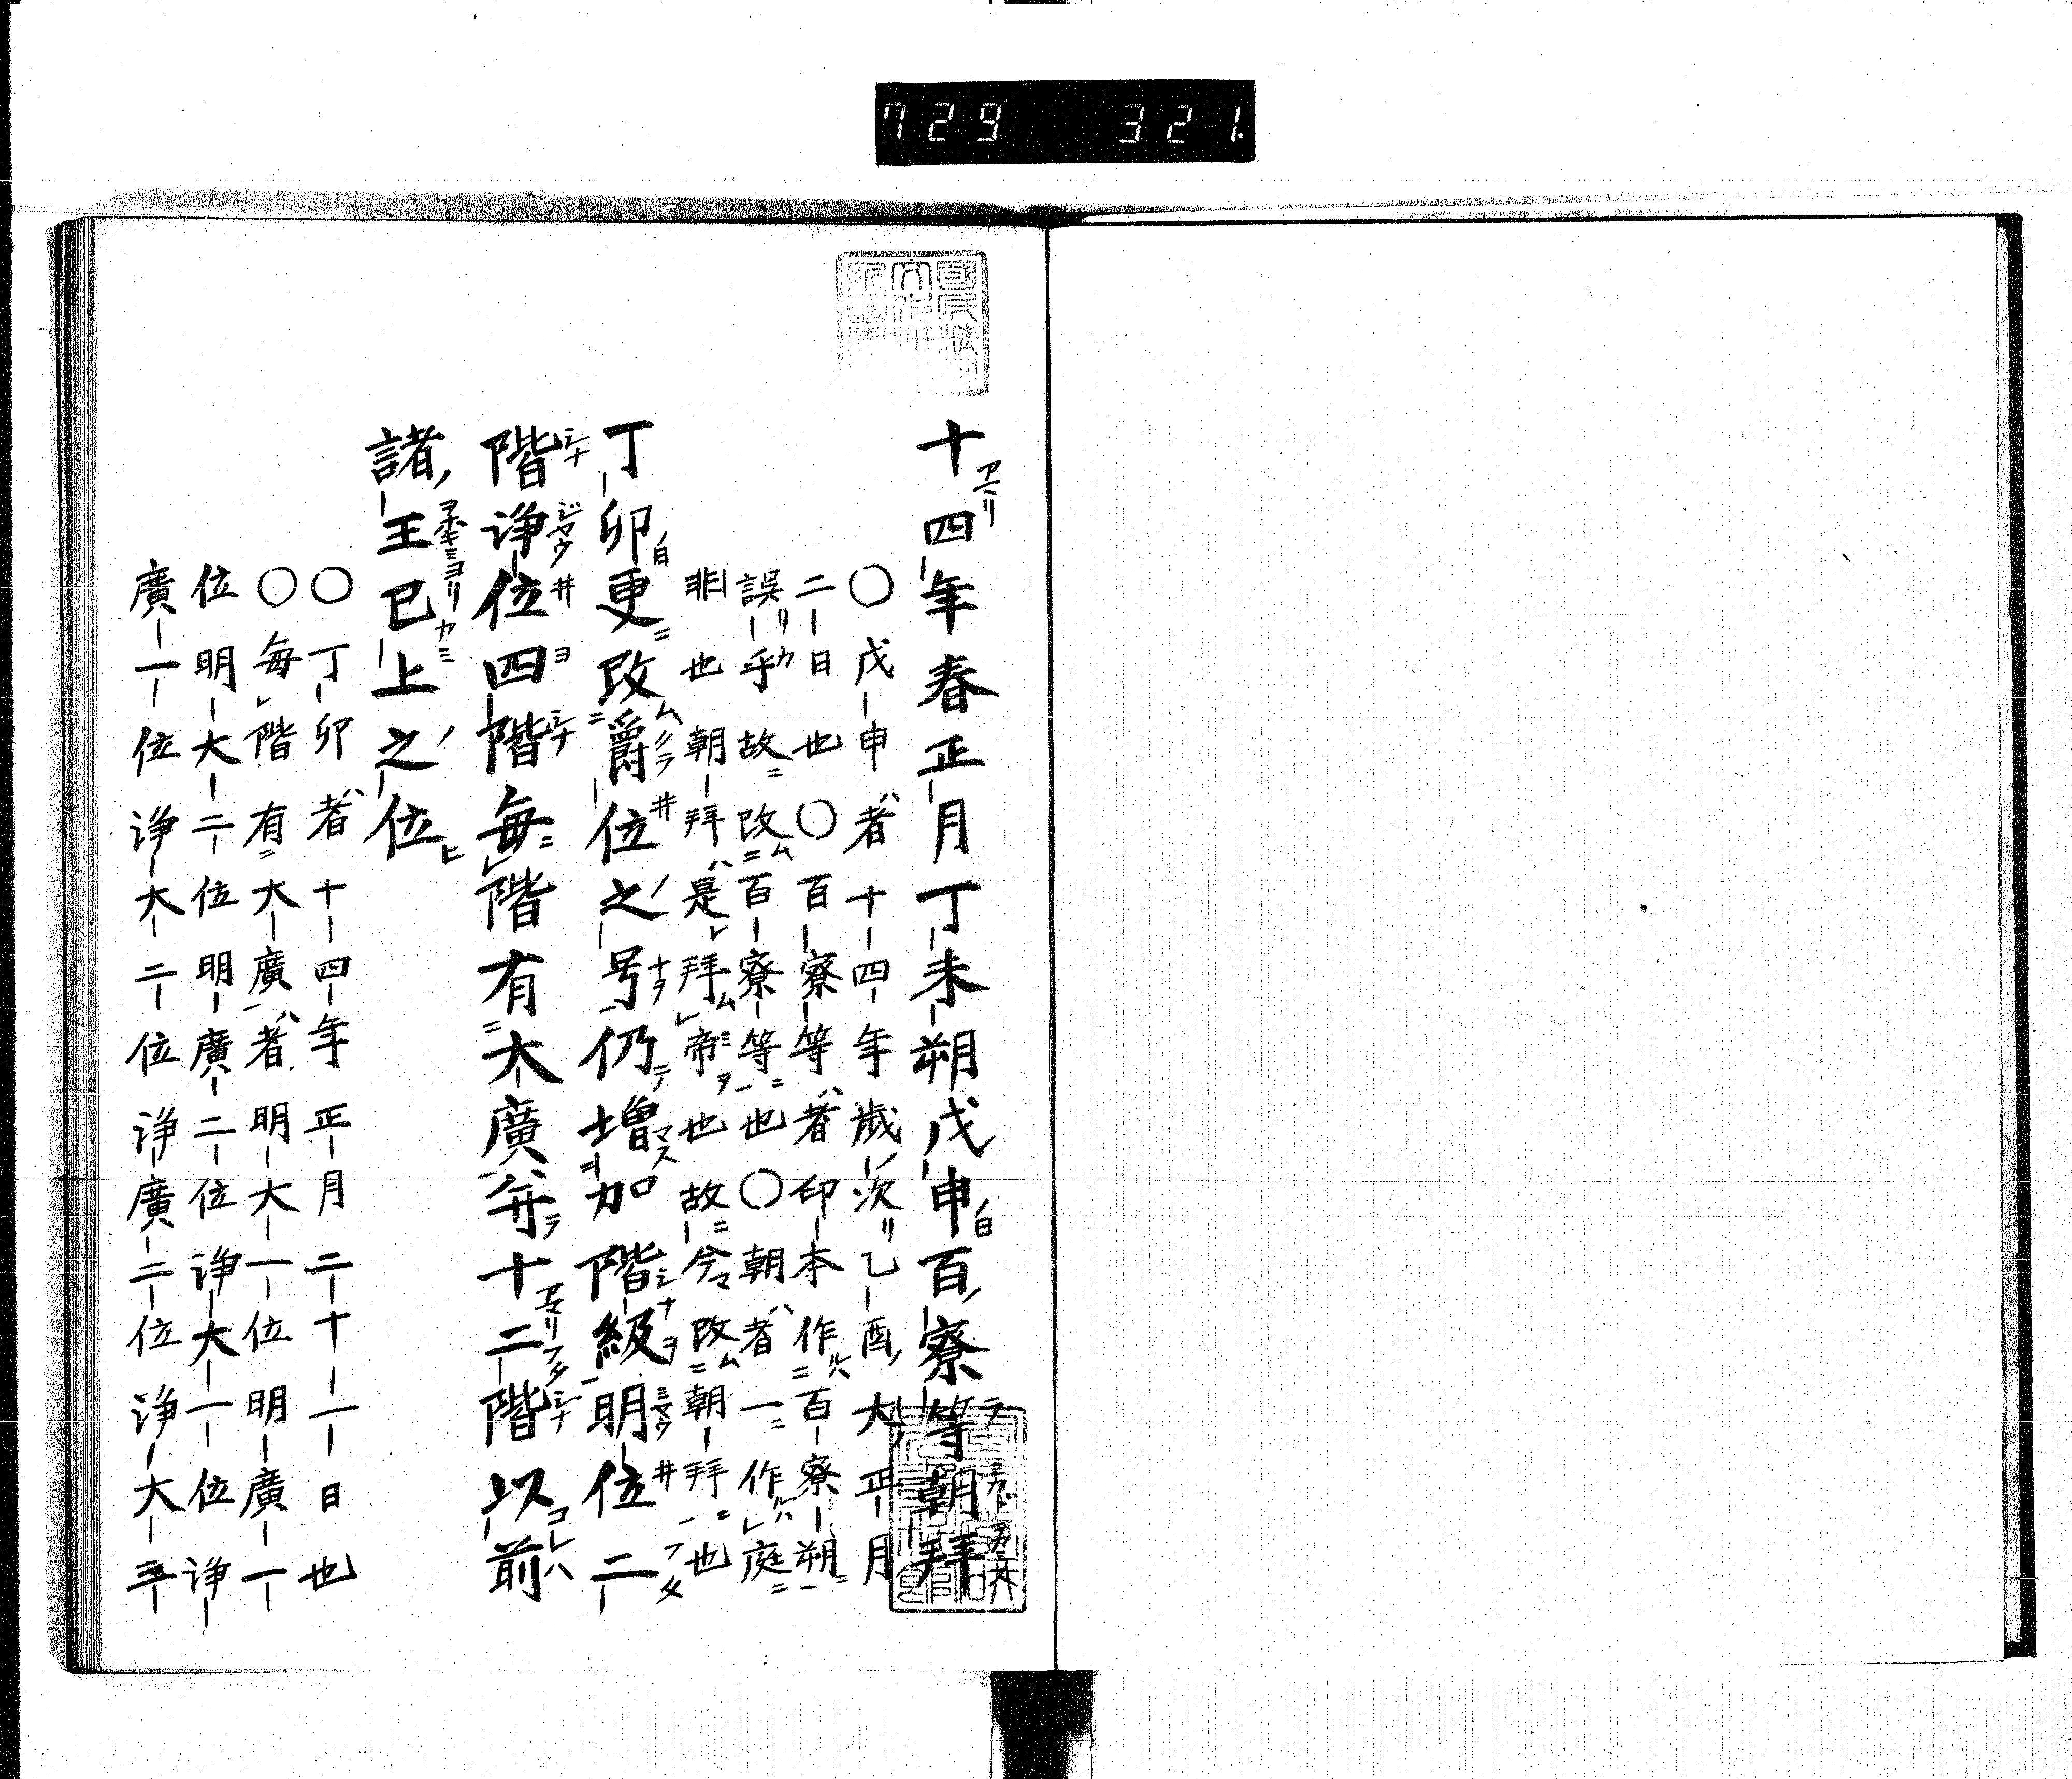 729 321.
十四年春正月丁未朔戊申百寮等朝拜
〇戊申者十四年歲次乙酉大正月
二日也〇百寮等者印本作百寮朔
誤乎故改百寮等也〇朝者一作庭
非也朝拜是拜帝也故今改朝拜也
丁卯更改爵位之号仍增加階級明位二
階諍位四階每階有大廣并十二階以前
諸王已上之位
〇丁卯者十四年正月二十一日也
〇每階有大廣者明大一位明廣一
位明大二位明廣二位諍大一位諍
廣一位諍大二位諍廣二位諍大三